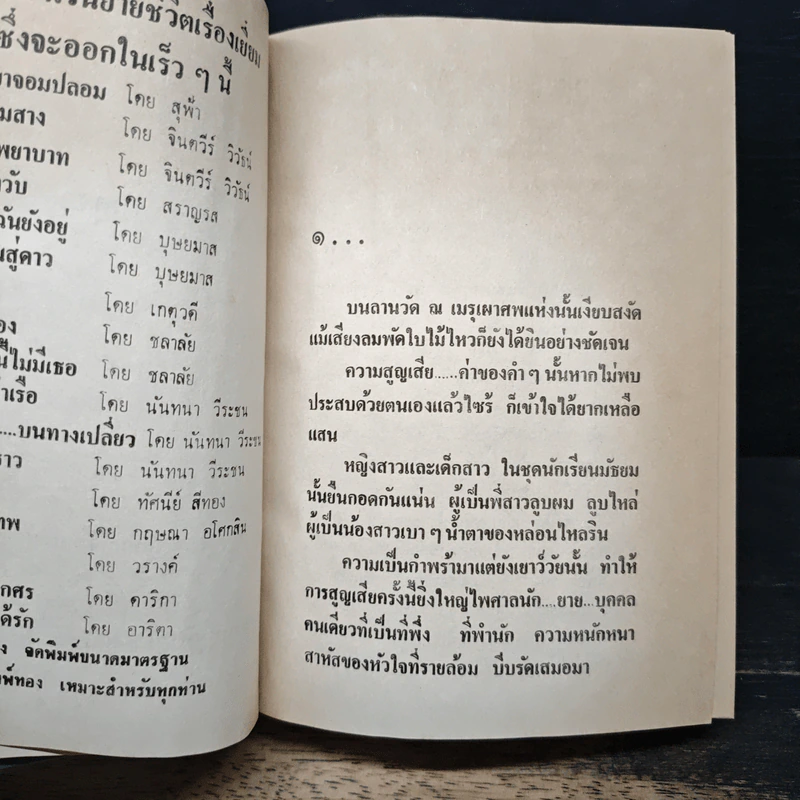 ชีวิตเรื่องเยี่ยม
ซึ่งจะออกในเร็ว ๆ นี้
จอมปลอม โดย สุฟ้า
สาง โดย จินตวีร์ วิวัธน์
พยาบาท โดย จินตวีร์ วิวัธน์
โดย สราญรส
ฉันยังอยู่ โดย บุษยมาส
สู่ดาว โดย บุษยมาส
โดย เกตุวดี
โดย ชลาลัย
ไม่มีเธอ โดย ชลาลัย
โดย นันทนา วีระชน
....บนทางเปลี่ยว โดย นันทนา วีระชน
โดย นันทนา วีระชน
โดย ทัศนีย์ สีทอง
โดย กฤษณา อโศกสิน
โดย วรางค์
โดย ดาริกา
โดย อาริตา
จัดพิมพ์ขนาดมาตรฐาน
เหมาะสำหรับทุกท่าน
๑...
บนลานวัด ณ เมรุเผาศพแห่งนั้นเงียบสงัด
แม้เสียงลมพัดใบไม้ไหวก็ยังได้ยินอย่างชัดเจน
ความสูญเสีย.....ค่าของคำ ๆ นั้นหากไม่พบ
ประสบด้วยตนเองแล้วไซร้ ก็เข้าใจได้ยากเหลือ
แสน
หญิงสาวและเด็กสาว ในชุดนักเรียนมัธยม
นั้นยืนกอดกันแน่น ผู้เป็นพี่สาวลูบผม ลูบไหล่
ผู้เป็นน้องสาวเบา ๆ น้ำตาของหล่อนไหลริน
ความเป็นกำพร้ามาแต่ยังเยาว์วัยนั้น ทำให้
การสูญเสียครั้งนี้ยิ่งใหญ่ไพศาลนัก....ยาย...บุคคล
คนเดียวที่เป็นที่พึ่ง ที่พำนัก ความหนักหนา
สาหัสของหัวใจที่รายล้อม บีบรัดเสมอมา